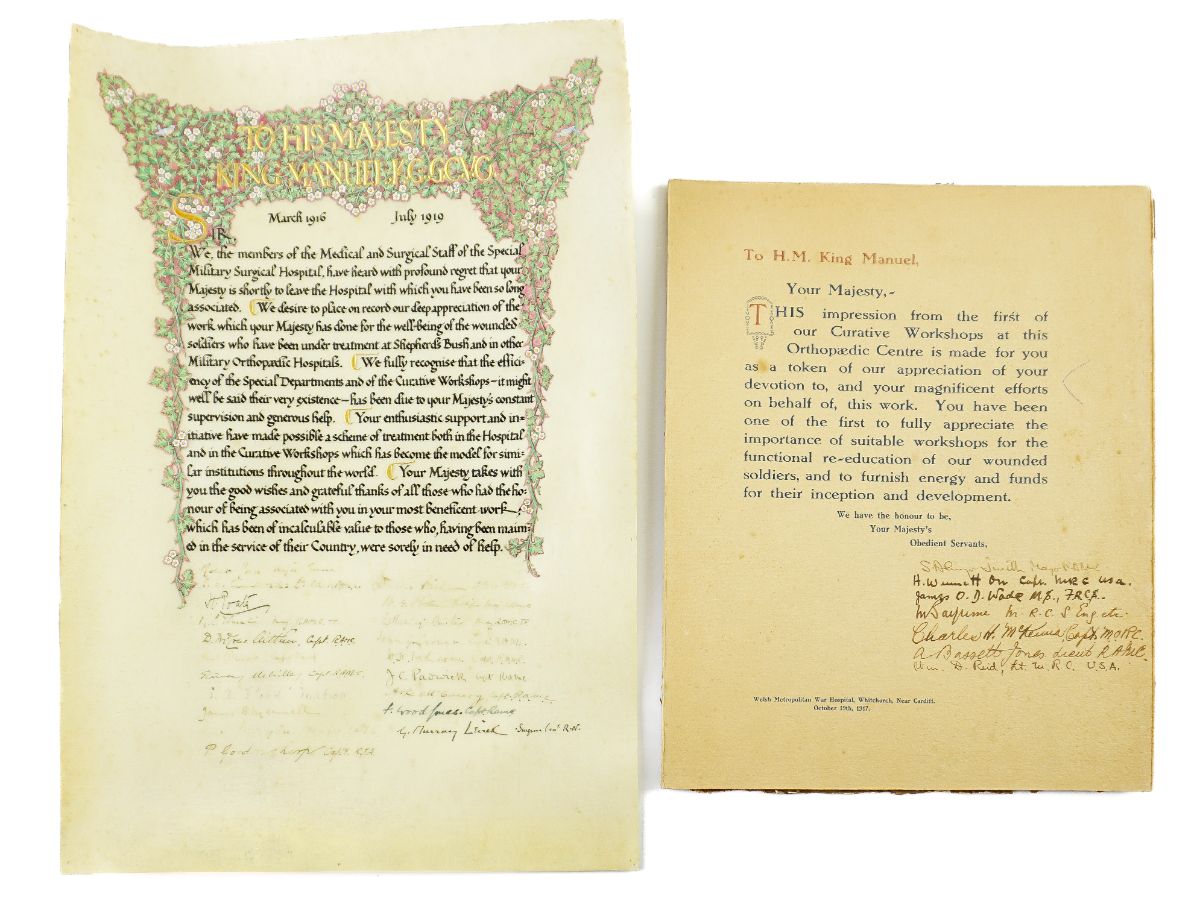 TO HIS MAJESTY
KING MANUEL K.G. G.C.V.O.
March 1916 July 1919
SIR,
We, the members of the Medical and Surgical Staff of the Special
Military Surgical Hospital, have heard with profound regret that your
Majesty is shortly to leave the Hospital with which you have been so long
associated. We desire to place on record our deep appreciation of the
work which your Majesty has done for the well-being of the wounded
soldiers who have been under treatment at Shepherd's Bush and in other
Military Orthopædic Hospitals. We fully recognise that the effici-
ency of the Special Departments and of the Curative Workshops – it might
well be said their very existence – has been due to your Majesty's constant
supervision and generous help. Your enthusiastic support and in=
itiative have made possible a scheme of treatment both in the Hospital
and in the Curative Workshops which has become the model for simi-
lar institutions throughout the world. Your Majesty takes with
you the good wishes and grateful thanks of all those who had the ho-
nour of being associated with you in your most beneficent work,
which has been of incalculable value to those who, having been maim-
ed in the service of their Country, were sorely in need of help.
Capt RAMC
J C Padwick Capt RAMC
F. Wood Jones. Capt RAMC
G. Murray Levick Surgeon R.N.
To H.M. King Manuel,
Your Majesty,-
THIS impression from the first of
our Curative Workshops at this
Orthopædic Centre is made for you
as a token of our appreciation of your
devotion to, and your magnificent efforts
on behalf of, this work. You have been
one of the first to fully appreciate the
importance of suitable workshops for the
functional re-education of our wounded
soldiers, and to furnish energy and funds
for their inception and development.
We have the honour to be,
Your Majesty's
Obedient Servants,
Smith Major
H. Winnett Orr Capt. MRC USA.
James O. D. Wade M.S., FRCS.
M. R. C. S Eng etc
Charles H. McKenna, Capt. M.O.R.C.
A. Bassett Jones Lieut R.A.M.C.
Wm. D. Reid, Lt. M.R.C. U.S.A.
Welsh Metropolitan War Hospital, Whitchurch, Near Cardiff.
October 19th, 1917.